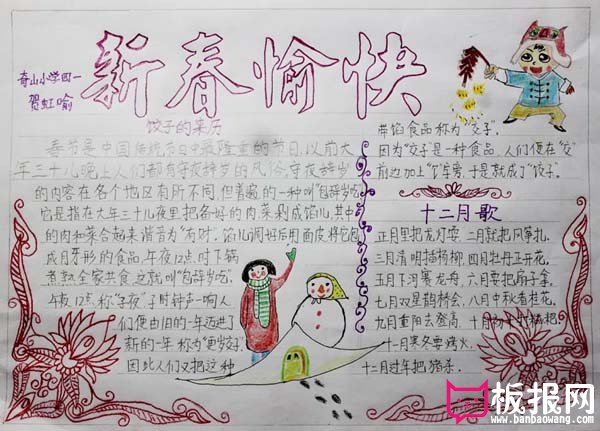 新春愉快
奇山小学四一
贺虹喻
饺子的来历
春节是中国传统节日中最隆重的节日,以前大
年三十儿晚上人们都有守夜辞岁的风俗,守夜辞岁
的内容在各个地区有所不同,但普遍的一种叫"包辞岁饺"
它是指在大年三十儿夜里把各好的肉菜剁成馅儿,其中
的肉和菜合起来谐音为"有财"。馅儿调好后用面皮将它包
成月牙形的食品,年夜12点,时下锅
煮熟全家共食,这就叫"包辞岁饺".
午夜12点,称"子夜"子时钟声一响人
们便由旧的一年迈进了
新的一年称为"更岁交子".
因此人们又把这种
带馅食品称为"交子".
因为"交子"是一种食品,人们便在"交"
前边加上"饣"车旁,于是就成了"饺子".
十二月歌
正月里把龙灯耍,二月就把风筝扎,
三月清明插杨柳,四月牡丹正开花,
五月下河赛龙舟,六月要把扇子拿,
七月双星鹊桥会,八月中秋看桂花,
九月重阳去登高,十月初
十一月寒冬要烤火,
十二月过年把猪杀.
板报网
www.banbaowang.com